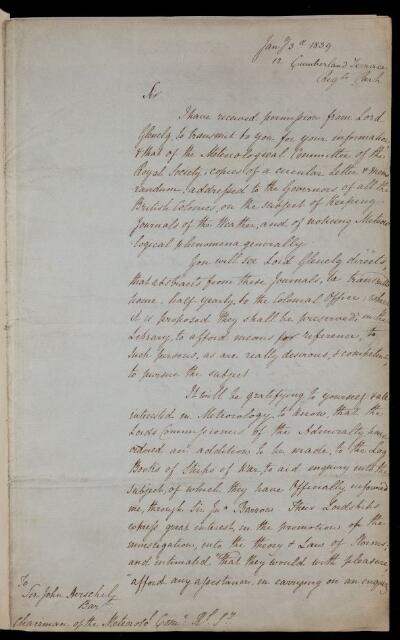 Jany 3d 1839
12 Cumberland Terrace
Regts Park
Sir
I have received permission from Lord
Glenelg, to transmit to you for your information
& that of the Meteorological Committee of the
Royal Society, copies of a circular Letter & Memo
randum, addressed to the Governors of all the
British Colonies, on the subject of keeping
Journals of the Weather, and of noticing Meteoro
logical phenomena generally
You will see Lord Glenelg directs,
that abstracts from these Journals, be transmitted
home, half yearly, to the Colonial Office; where
it is proposed they shall be preserved; in the
Library, to afford means for reference, to
such persons, as are really desirous, & competent,
to pursue the subject
It will be gratifying to yourself & all
interested in Meteorology to know, that the
Lords Commissioners of the Admiralty, have
ordered an addition to be made, to the Log
Books of Ships of War, to aid enquiry into the
subject, of which they have Officially informed
me, through Sir Jno Barrow. Their Lordships
express great interest, in the promotion of the
investigation, into the theory & Law of Storms;
and intimated "that they would with pleasure
afford any assistance, in carrying on an enquiry
To
Sir John Herschel
Bart
Chairman of the Meteorol Comee Rl Sy